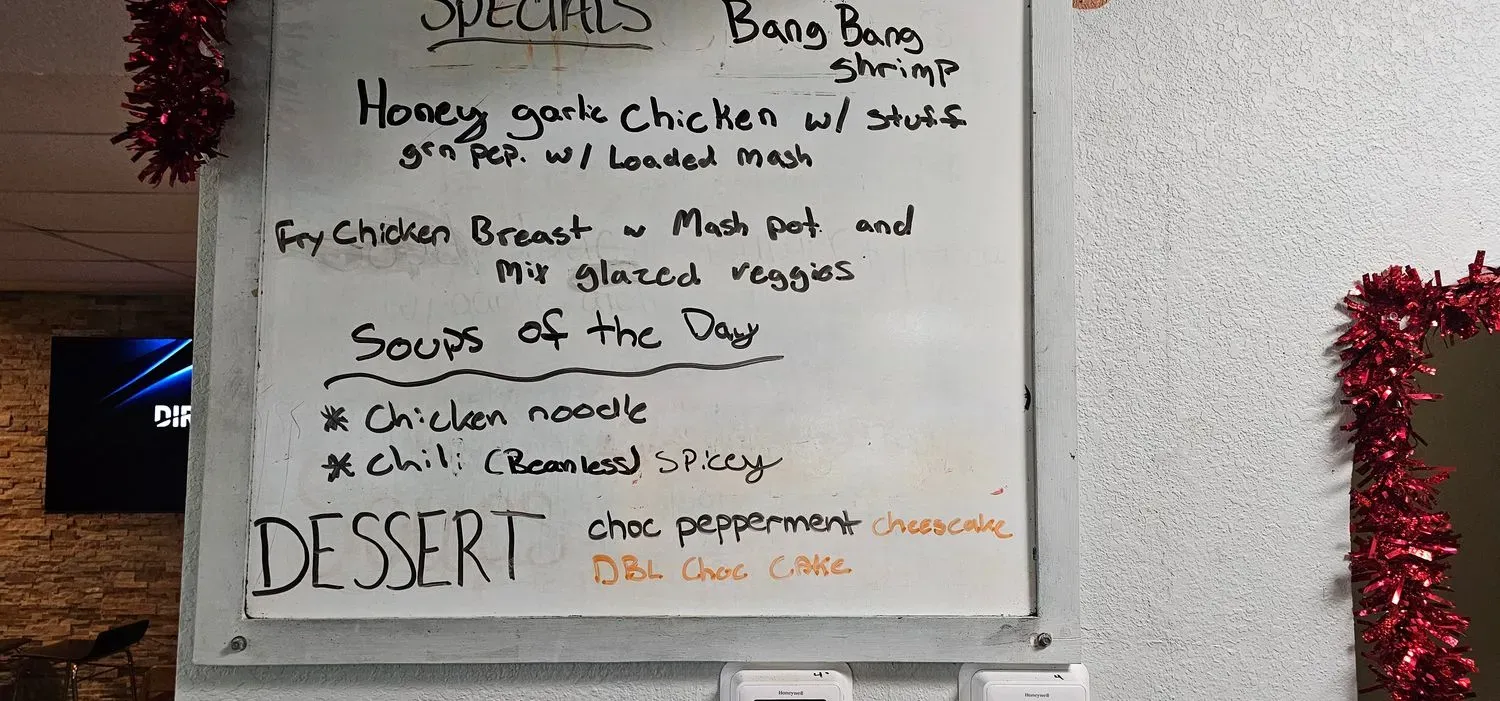 SPECIALS
Bang Bang
shrimp
Honey garlic chicken w/ stuff
grn pep. w/ Loaded mash
Fry Chicken Breast w Mash pot. and
Mix glazed veggies
Soups of the Day
* Chicken noodle
* Chili (Beanless) Spicey
DESSERT
choc pepperment cheescake
DBL Choc CAKe
DIR
Honeywell
Honeywell